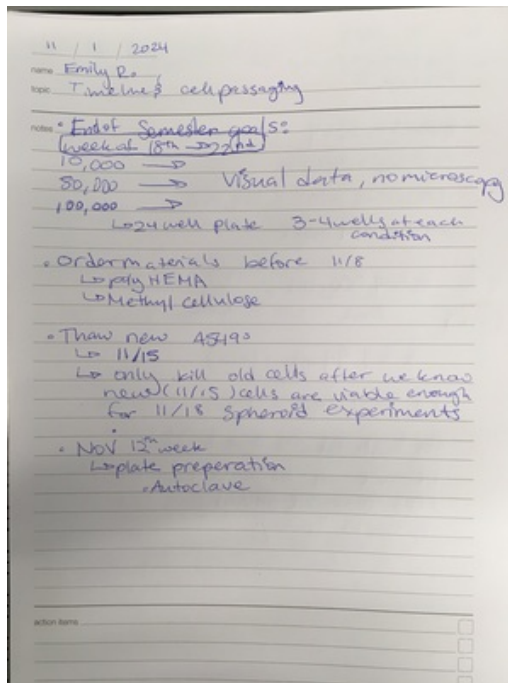 11 / 1 / 2024
name Emily R.
topic Timeline & cell passaging
notes • End of Semester goals:
week of 18th → 22nd
10,000 →
50,000 → visual data, no microscopy
100,000
↳ 24 well plate 3-4 wells at each
condition
• Order materials before 11/8
↳ poly HEMA
↳ Methyl cellulose
• Thaw new A549s
↳ 11/15
↳ only kill old cells after we know
new (11/15) cells are viable enough
for 11/18 spheroid experiments
• Nov 12th week
↳ plate preperation
• Autoclave
action items